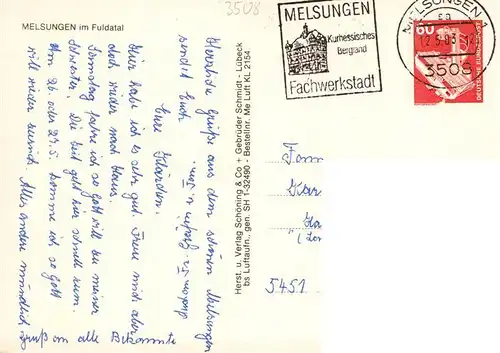 MELSUNGEN im Fuldatal
3508
MELSUNGEN
Kurhessisches
Bergland
Fachwerkstadt
MELSUNGEN
3508
60
DEUTSCHE BUNDESPOST
Herzliche Grüße aus dem schönen Melsungen
sendet Euch
Eure
Hier habe ich es sehr gut. Freue mich aber
doch wieder nach Haus.
Samstag fahre ich so Gott will zu meiner
Schwester. Die Zeit geht hier schnell rum.
Am 26. oder 27.5. komme ich so Gott
will wieder zurück. Alles andere mündlich
Gruß an alle Bekannte
Herst. u. Verlag Schöning & Co + Gebrüder Schmidt - Lübeck
bs Luftaufn., gen. SH 1-32490 - Bestellnr. Me Luft KL 2154
Fam
5451